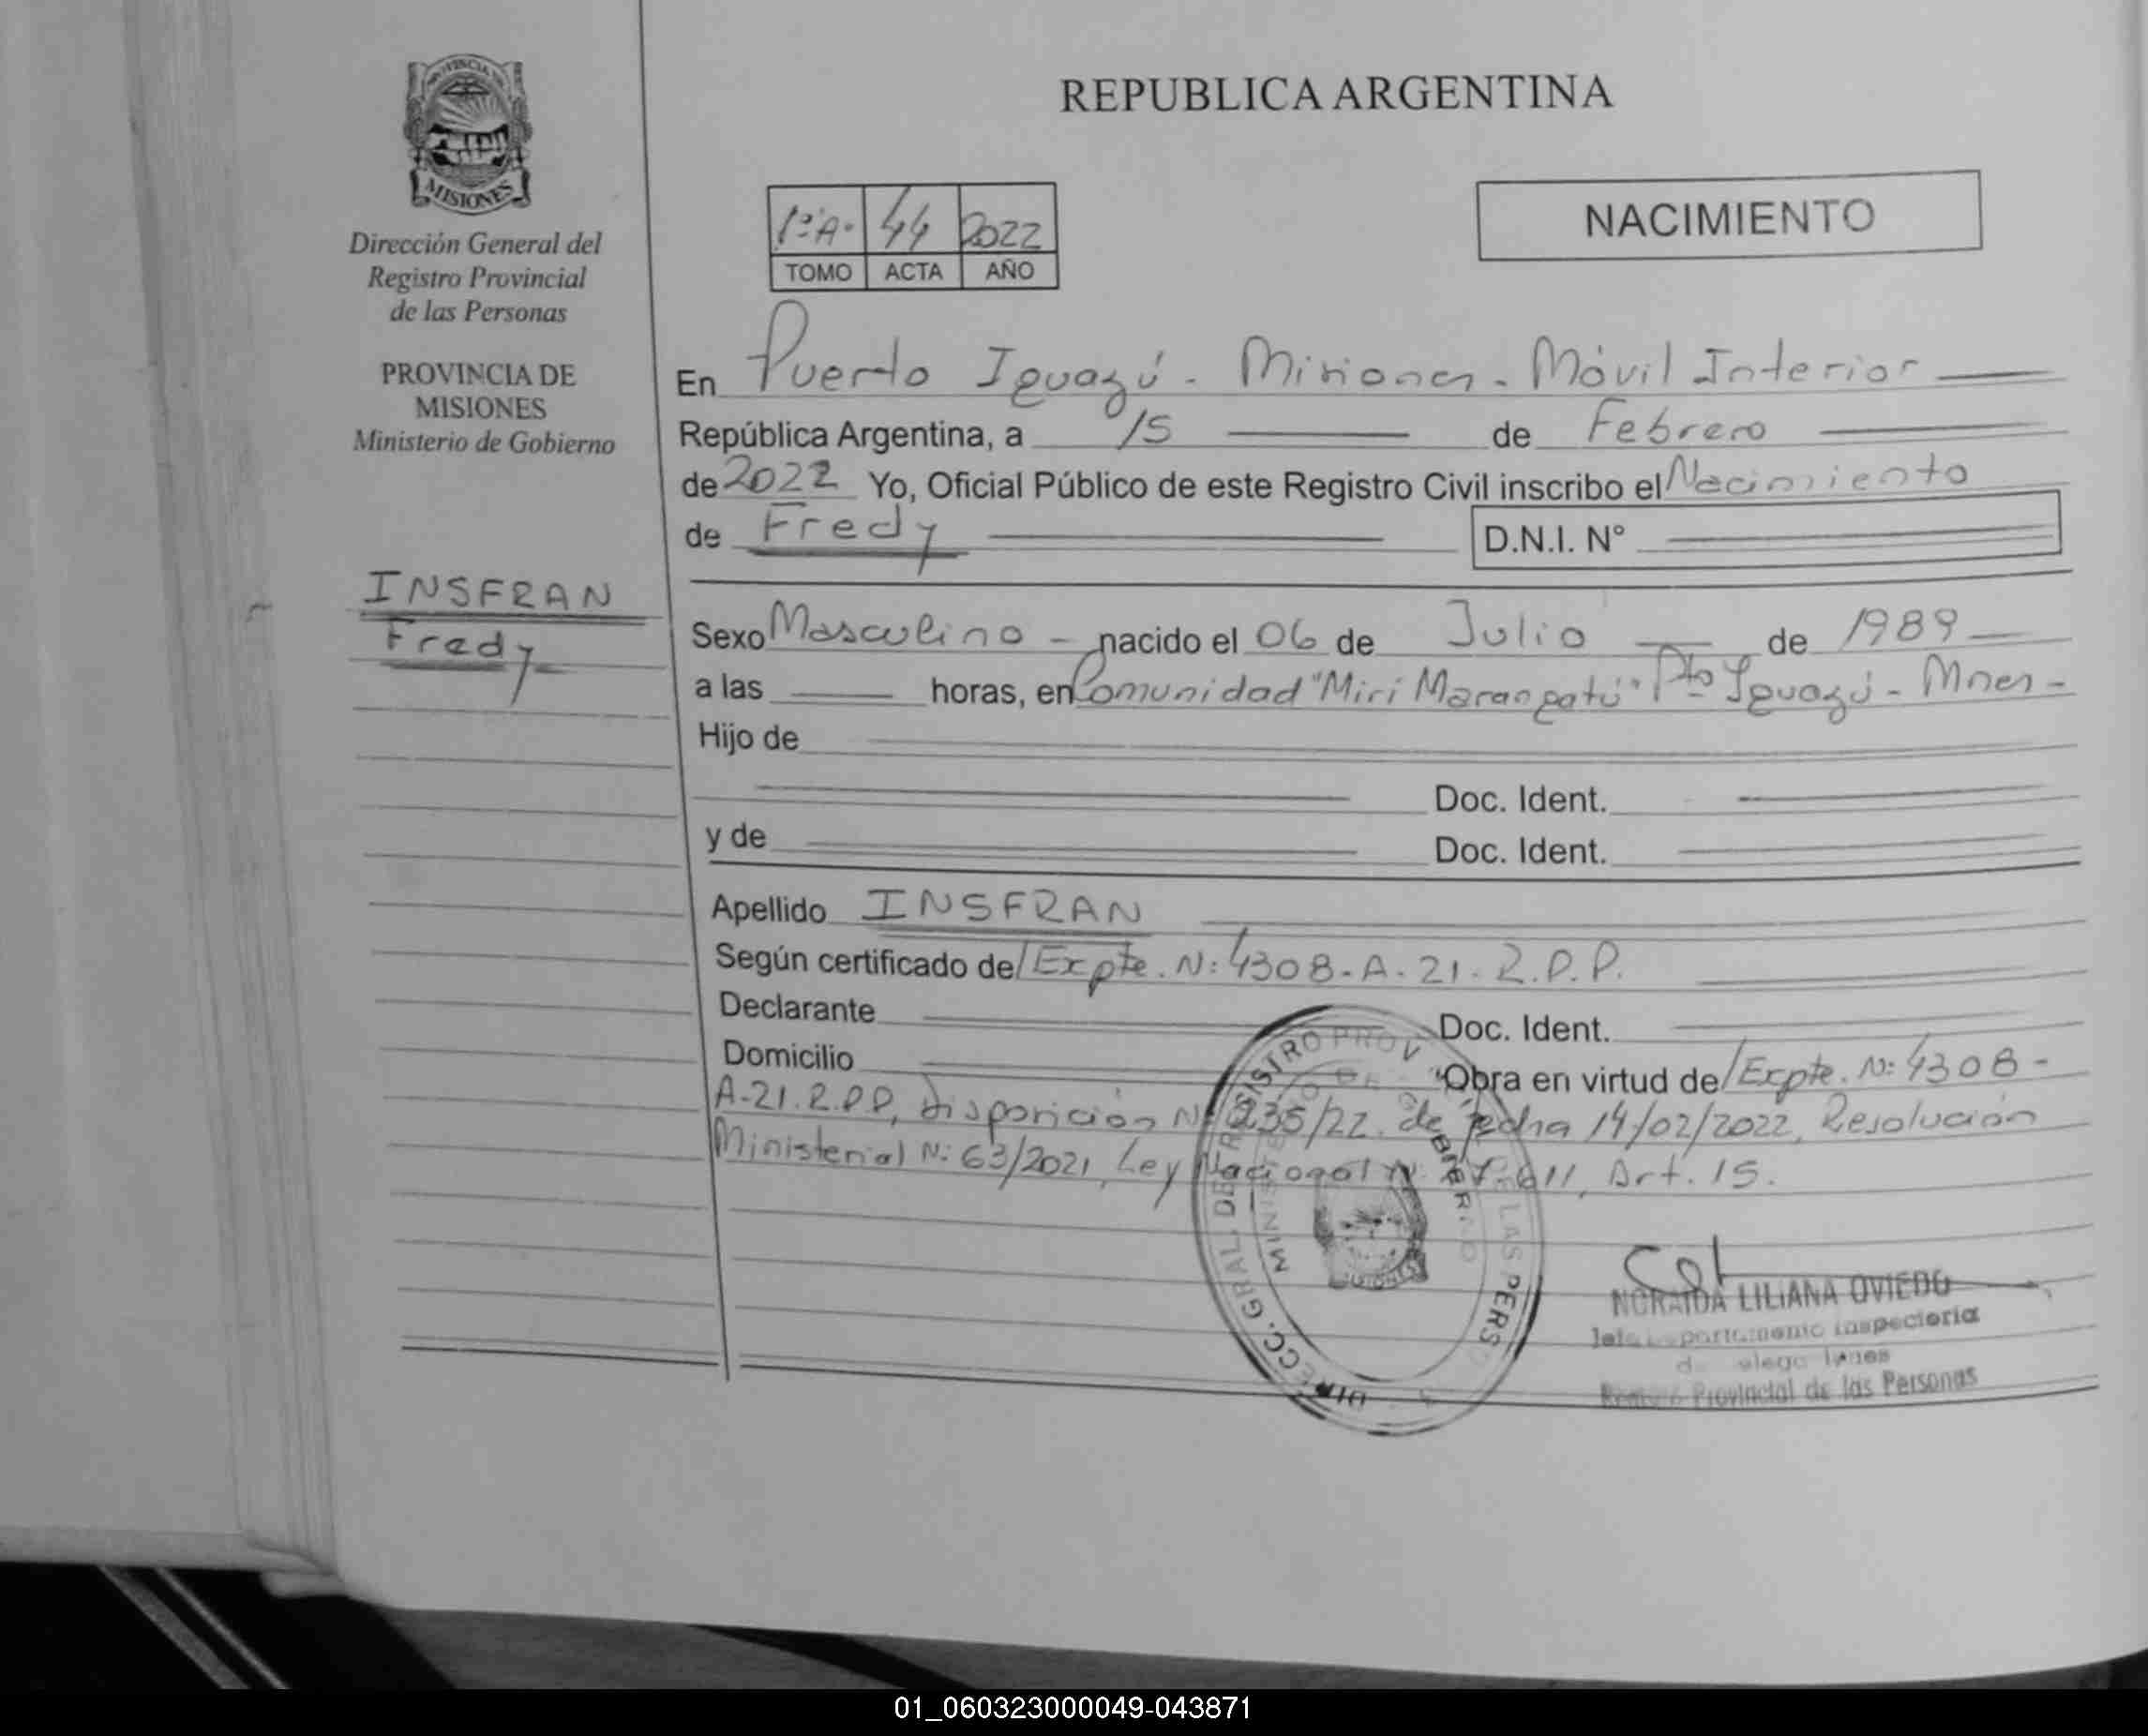 PROVINCIA DE
MISIONES
Dirección General del
Registro Provincial
de las Personas
PROVINCIA DE
MISIONES
Ministerio de Gobierno
INSFRAN
Fredy
REPUBLICA ARGENTINA
1º A. 44 2022
TOMO ACTA AÑO
NACIMIENTO
En Puerto Iguazú - Misiones - Móvil Interior
República Argentina, a 15 de Febrero
de 2022 Yo, Oficial Público de este Registro Civil inscribo el Nacimiento
de Fredy D.N.I. N°
Sexo Masculino - nacido el 06 de Julio de 1989
a las horas, en Comunidad "Miri Marangatú" Pto Iguazú - Mnes -
Hijo de
Doc. Ident.
y de Doc. Ident.
Apellido INSFRAN
Según certificado de/ Expte. N: 4308-A-21-R.P.P.
Declarante Doc. Ident.
Domicilio "Obra en virtud de/ Expte. N: 4308-
A-21.R.P.P, disposición N: 235/22. de fecha 14/02/2022, Resolución
Ministerial N: 63/2021, Ley Nacional N: 611, Art. 15.
DIRECC. GRAL. DE REGISTRO PROV DE LAS PERS
MINISTERIO DE GOBIERNO
MISIONES
NORAIDA LILIANA OVIEDO
Inspectoria
Provincial de las Personas
01_060323000049-043871